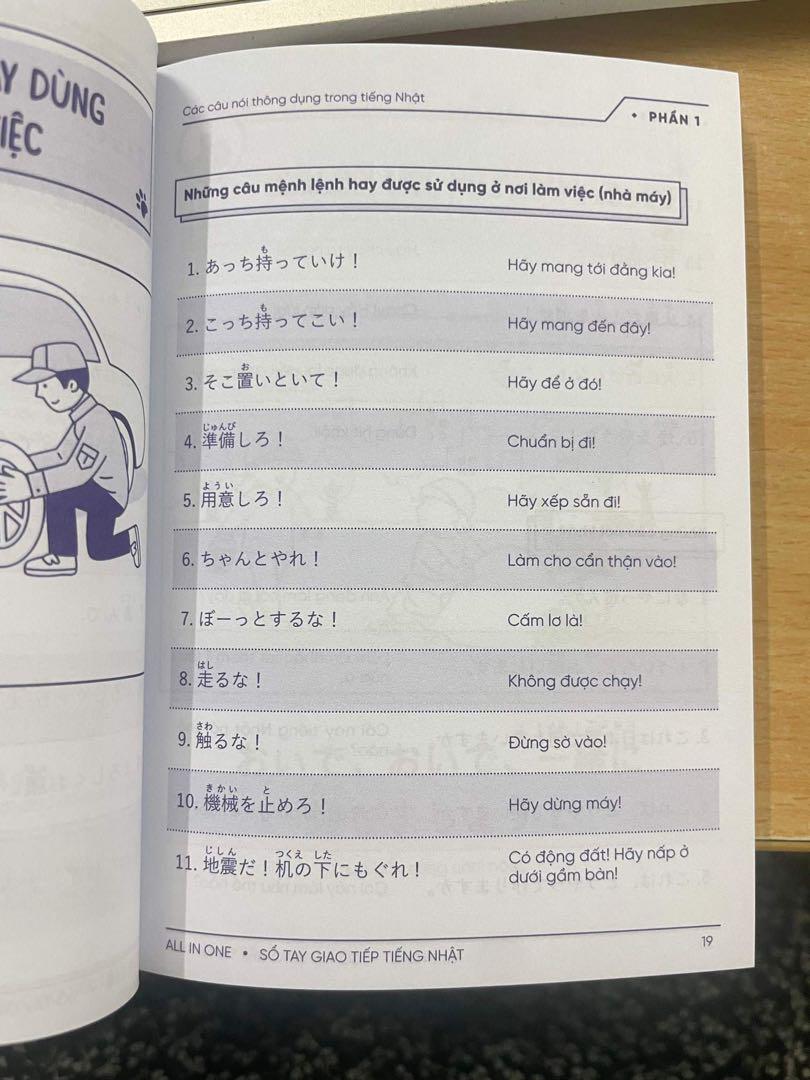 Y DÙNG
IỆC
Các câu nói thông dụng trong tiếng Nhật
PHẦN 1
Những câu mệnh lệnh hay được sử dụng ở nơi làm việc (nhà máy)
も
1. あっち持っていけ！ Hãy mang tới đằng kia!
も
2. こっち持ってこい！ Hãy mang đến đây!
お
3. そこ置いといて！ Hãy để ở đó!
じゅんび
4. 準備しろ！ Chuẩn bị đi!
ようい
5. 用意しろ！ Hãy xếp sẵn đi!
6. ちゃんとやれ！ Làm cho cẩn thận vào!
7. ぼーっとするな！ Cấm lơ là!
はし
8. 走るな！ Không được chạy!
さわ
9. 触るな！ Đừng sờ vào!
きかい と
10. 機械を止めろ！ Hãy dừng máy!
じしん つくえ した
11. 地震だ！机の下にもぐれ！ Có động đất! Hãy nấp ở
dưới gầm bàn!
ALL IN ONE • SỔ TAY GIAO TIẾP TIẾNG NHẬT
19